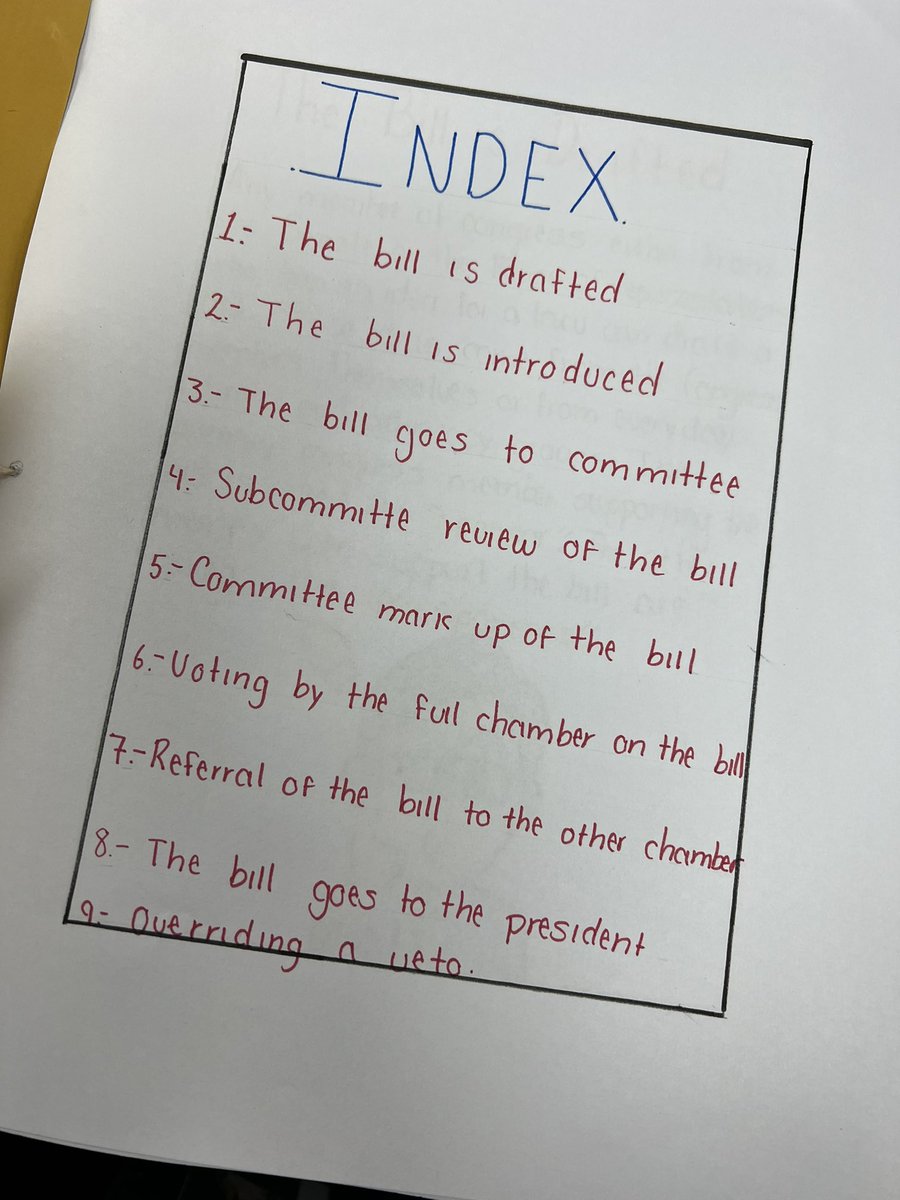 .INDEX.
1.- The bill is drafted
2.- The bill is introduced
3.- The bill goes to committee
4.- Subcommitte review of the bill
5.- Committee mark up of the bill
6.- Voting by the full chamber on the bill
7.- Referral of the bill to the other chamber
8.- The bill goes to the president
9.- Overriding a veto.